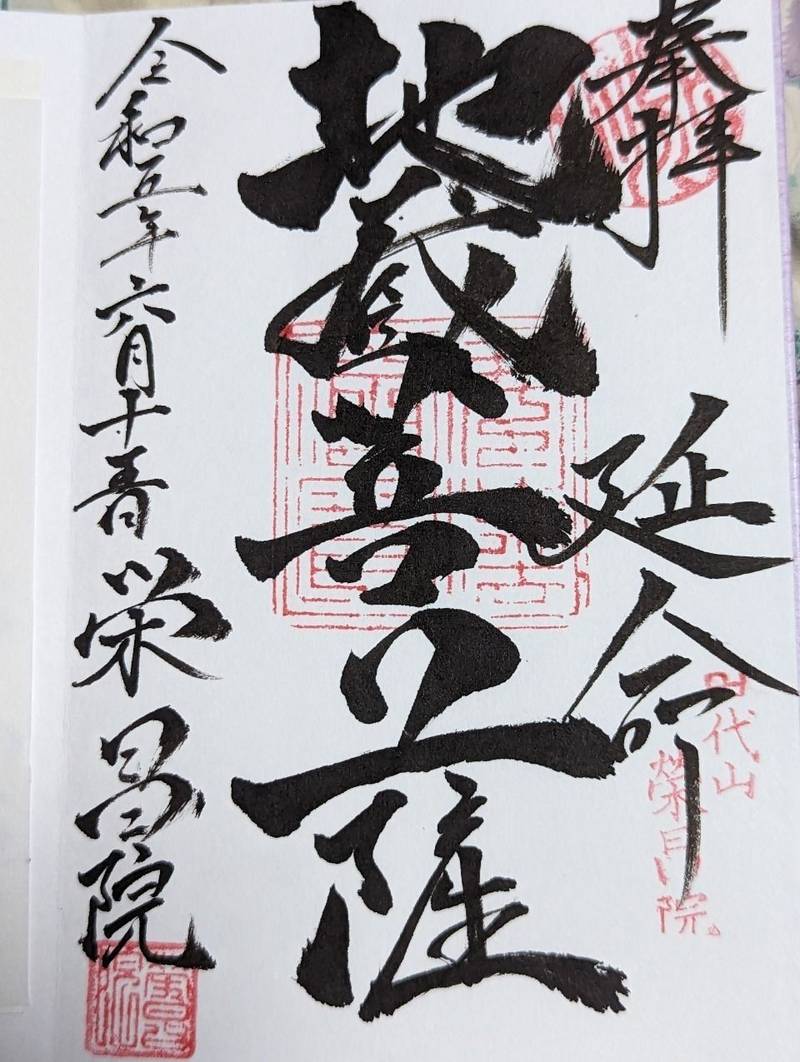 奉拝
延命
地蔵菩薩
令和五年六月十日 栄昌院
代山
榮昌院